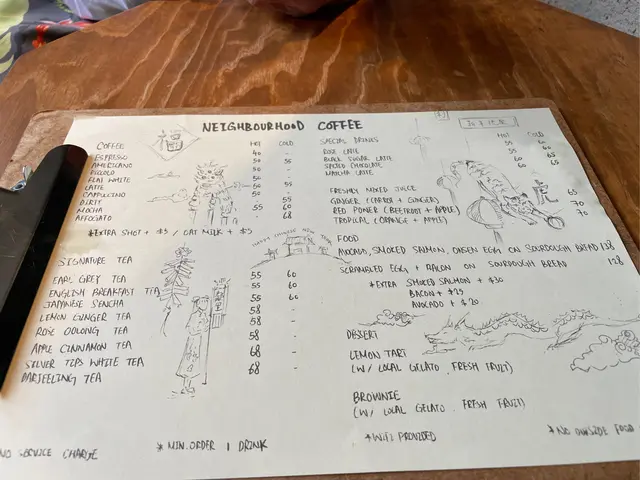 NEIGHBOURHOOD COFFEE
福
COFFEE HOT COLD
ESPRESSO 40 -
AMERICANO 50 55
PICCOLO 50 -
FLAT WHITE 50 -
LATTE
CAPPUCCINO
DIRTY
MOCHA 55 60
AFFOGATO - 68
*EXTRA SHOT + $5 / OAT MILK + $5
HAPPY CHINESE NEW YEAR
SIGNATURE TEA
EARL GREY TEA 55 60
ENGLISH BREAKFAST TEA 55 60
JAPANESE SENCHA 55 60
LEMON GINGER TEA 58 -
ROSE OOLONG TEA 58 -
APPLE CINNAMON TEA 58 -
SILVER TIPS WHITE TEA 68 -
DARJEELING TEA 68 -
NO SERVICE CHARGE
* MIN. ORDER 1 DRINK
SPECIAL DRINKS HOT COLD
ROSE LATTE 55
BLACK SUGAR LATTE
SALTED CHOCOLATE 60 65
MATCHA LATTE 60 65
虎
FRESHLY MIXED JUICE
GINGER (CARROT + GINGER) 65
RED POWER (BEETROOT + APPLE) 70
TROPICAL (ORANGE + APPLE) 70
FOOD
AVOCADO, SMOKED SALMON, ONSEN EGG ON SOURDOUGH BREAD 138
SCRAMBLED EGG + BACON ON SOURDOUGH BREAD 128
*EXTRA SMOKED SALMON + $30
BACON + $25
AVOCADO + $20
DESSERT
LEMON TART
(W/ LOCAL GELATO, FRESH FRUIT)
BROWNIE
(W/ LOCAL GELATO, FRESH FRUIT)
* WIFI PROVIDED
* NO OUTSIDE FOOD